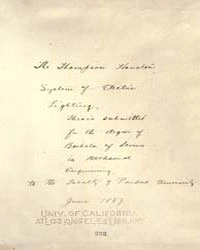 The Thompson Houston
System of Electric
Lighting.
Thesis submitted
for the degree of
Bachelor of Science
in Mechanical
Engineering.
to the Faculty of Purdue University
June 1887
UNIV. OF CALIFORNIA
AT LOS ANGELES LIBRARY